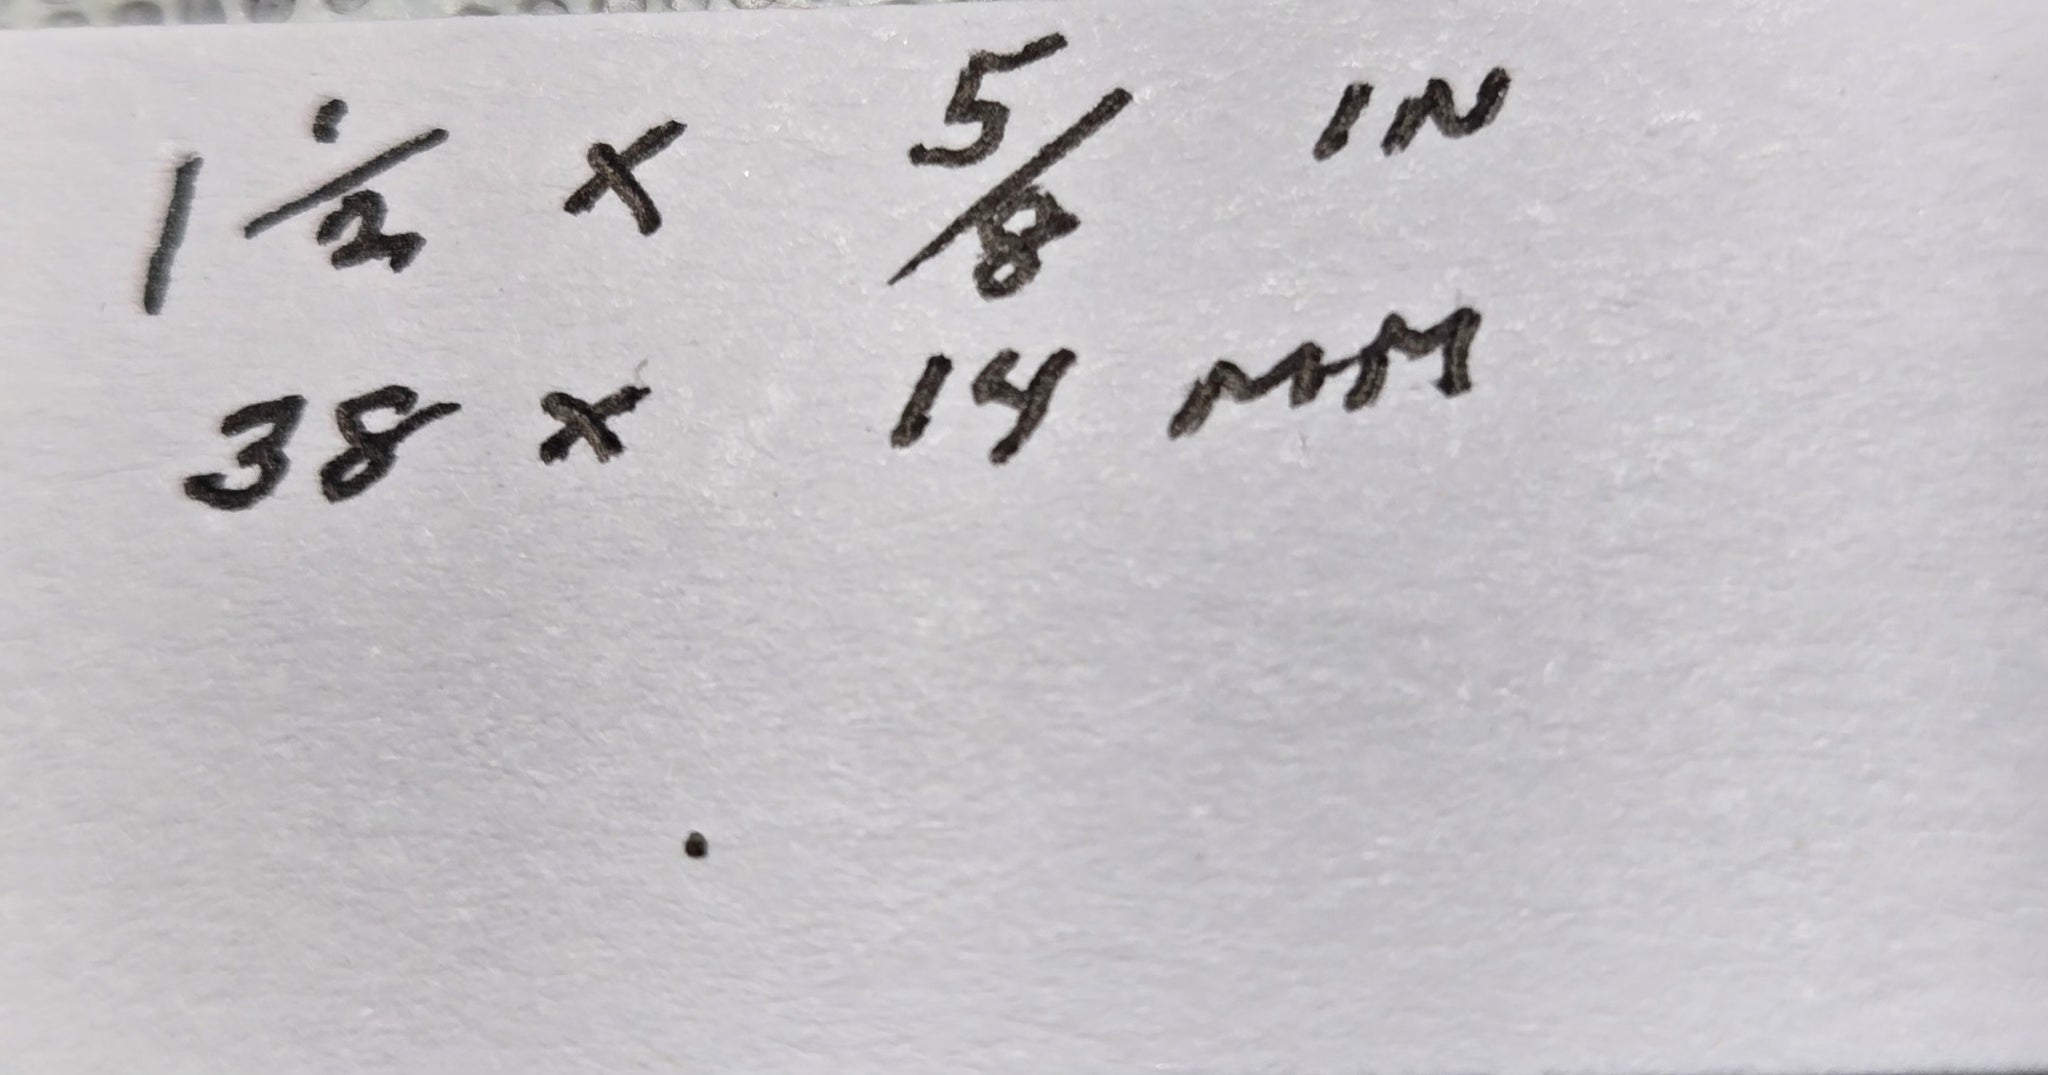 1 1/2 x 5/8 IN
38 x 14 MM